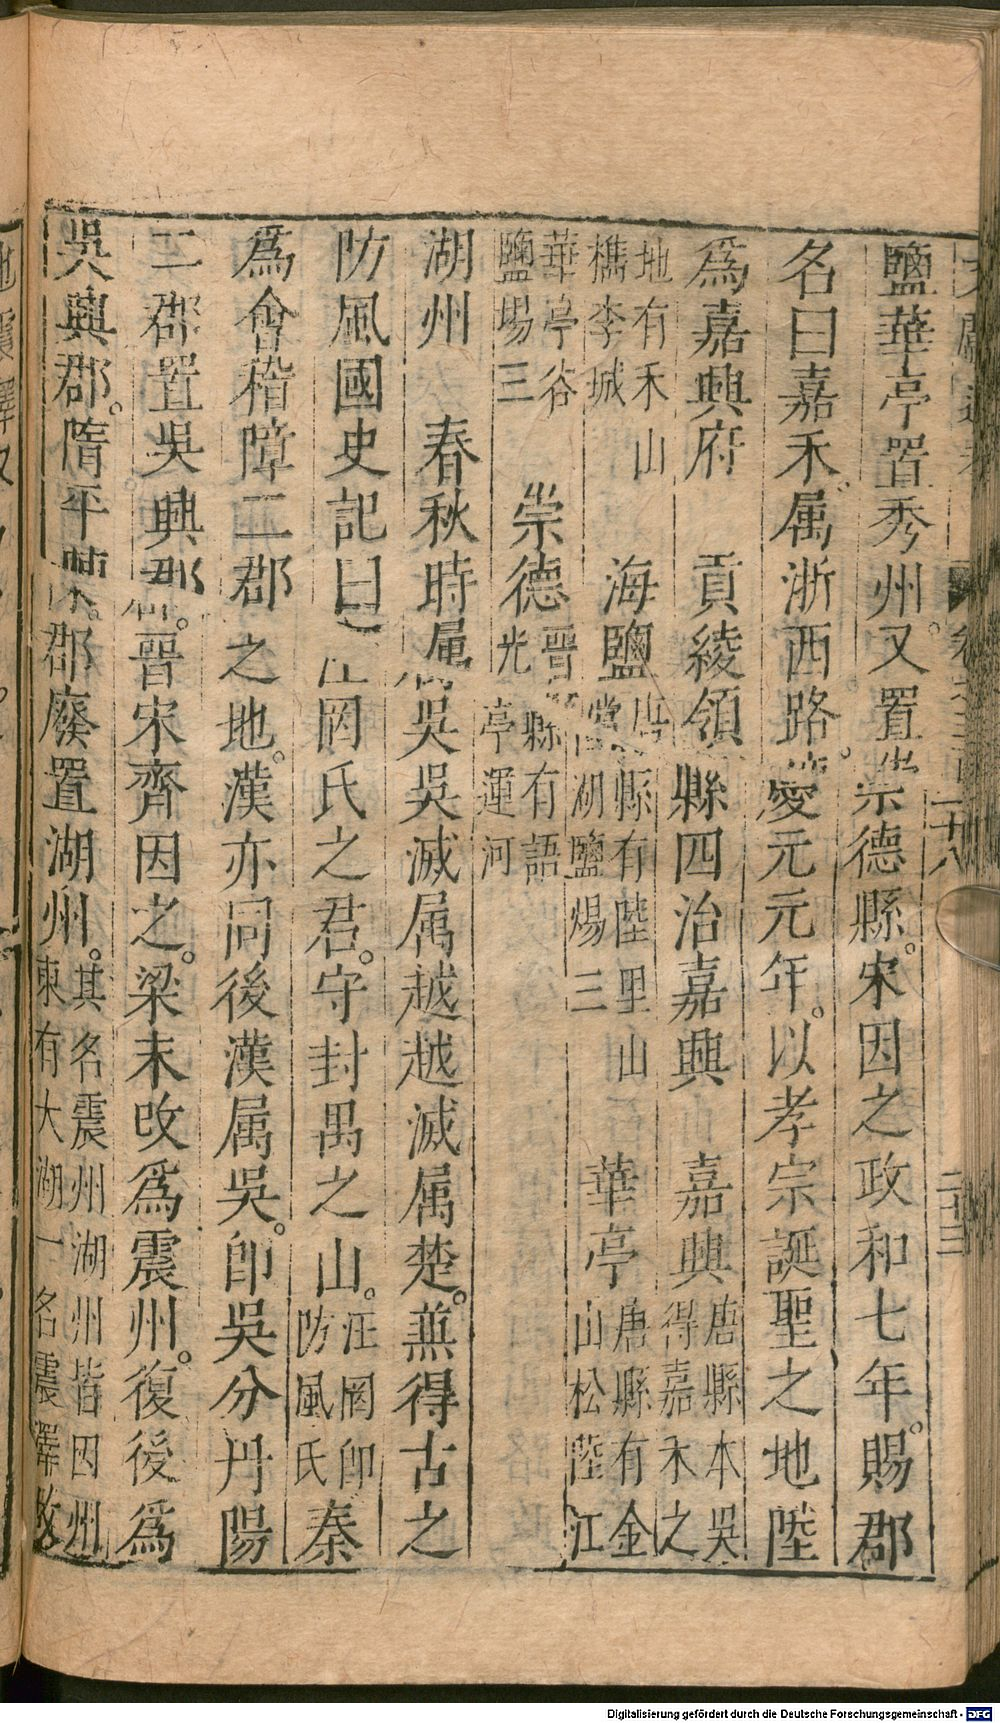 鹽華亭置秀州。又置崇德縣。宋因之政和七年。賜郡
名曰嘉禾。属浙西路。慶元元年。以孝宗誕聖之地陞
爲嘉興府 貢綾領縣四治嘉興 嘉興唐縣本吳得嘉禾之
地有禾山檇李城 海鹽縣有陸里山當湖鹽塲三 華亭唐縣有金山松陸江
華亭谷鹽場三 崇德晋縣有語光亭運河
湖州 春秋時属吳吳滅属越越滅属楚。兼得古之
防風國史記曰汪罔氏之君。守封禺之山。汪罔卽防風氏秦
爲會稽障二郡之地。漢亦同後漢属吳。卽吳分丹陽
二郡置吳興郡。晋宋齊因之。梁末改爲震州。復後爲
吳興郡。隋平陳。郡廢置湖州。其名震州湖州皆因州東有大湖一名震澤故
二十三
Digitalisierung gefördert durch die Deutsche Forschungsgemeinschaft - DFG